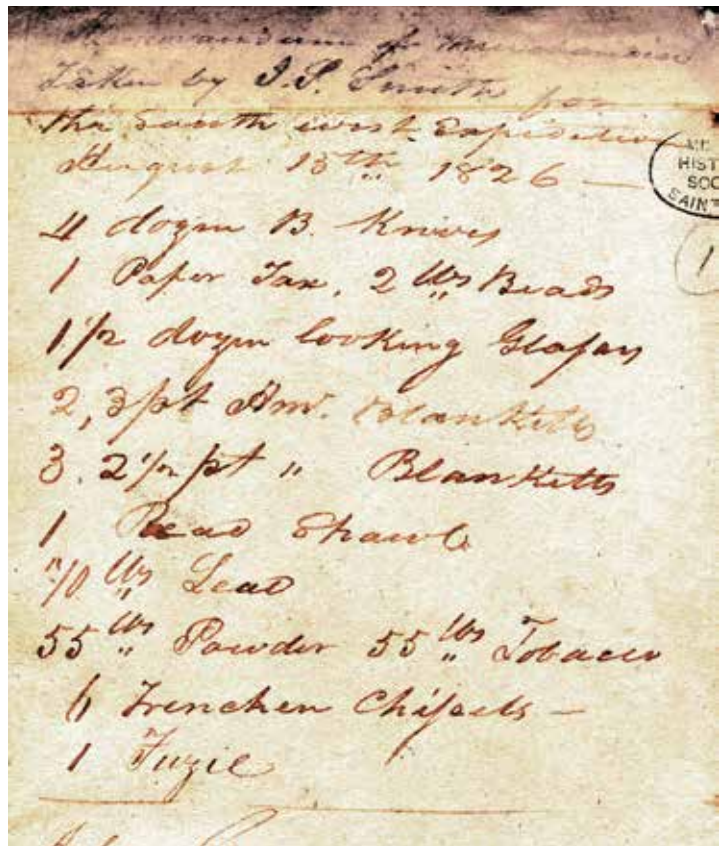 Memorandum of Merchandise
Taken by J. S. Smith for
the South west Expedition
August 15th 1826 —
MI
HIST
SOC
SAINT
4 dozen B. Knives
1
1 Paper Tax, 2 lbs Beads
1 1/2 dozen looking Glasses
2, 3 pt Amr. Blanketts
3. 2 1/2 pt " Blanketts
1 Read Shawl
70 lbs Lead
55 lbs Powder 55 lbs Tobacco
6 Trenchen Chissels —
1 Fuzie